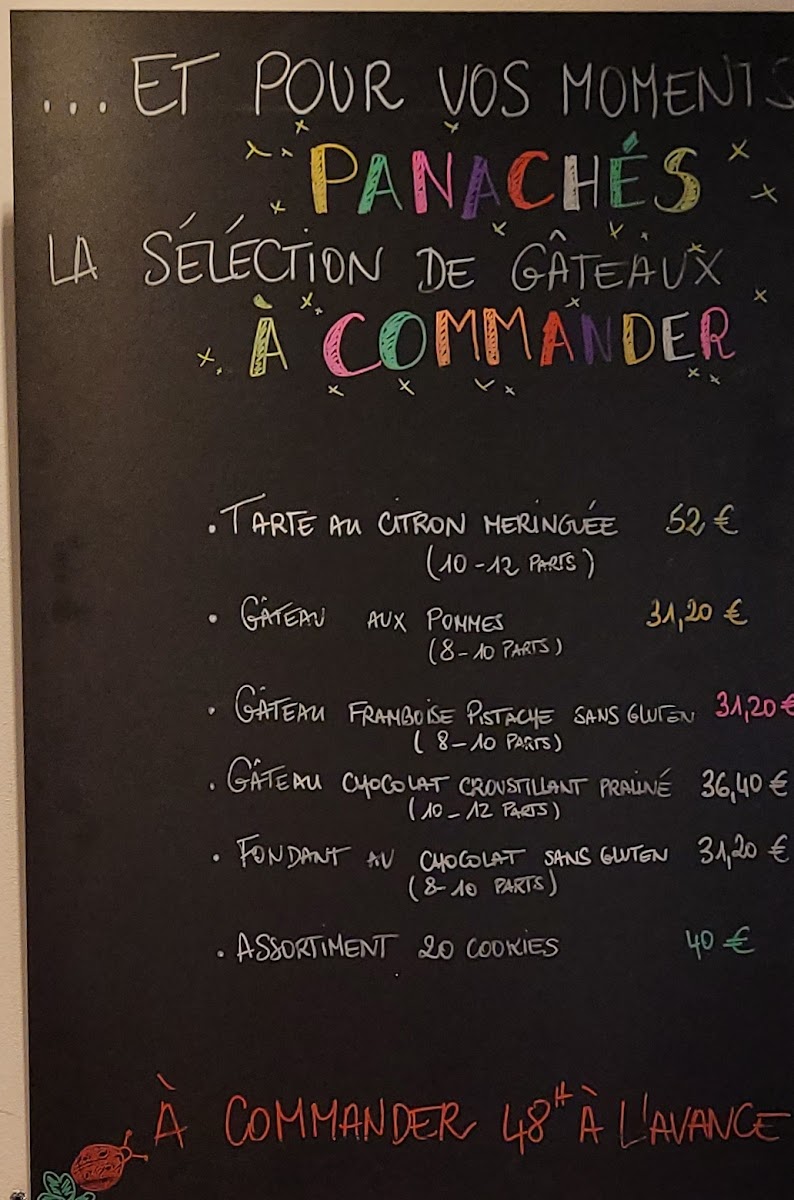 ... ET POUR VOS MOMENTS
PANACHÉS
LA SÉLÉCTION DE GÂTEAUX
À COMMANDER
• TARTE AU CITRON MERINGUÉE 52 €
(10-12 PARTS)
• GÂTEAU AUX POMMES 31,20 €
(8-10 PARTS)
• GÂTEAU FRAMBOISE PISTACHE SANS GLUTEN 31,20 €
(8-10 PARTS)
• GÂTEAU CHOCOLAT CROUSTILLANT PRALINÉ 36,40 €
(10-12 PARTS)
• FONDANT AU CHOCOLAT SANS GLUTEN 31,20 €
(8-10 PARTS)
• ASSORTIMENT 20 COOKIES 40 €
À COMMANDER 48H À L'AVANCE